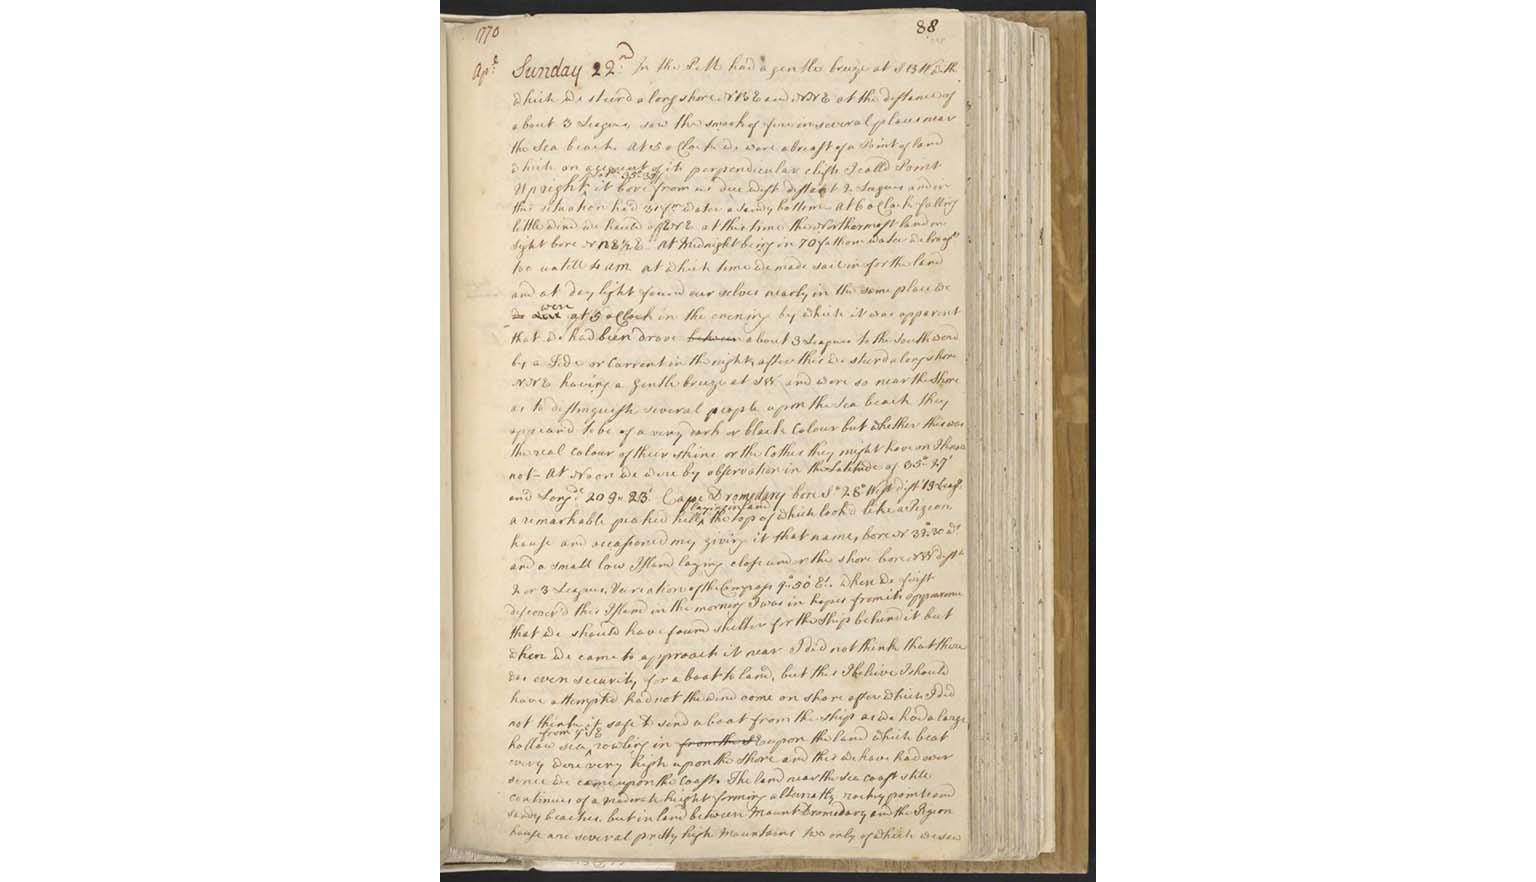 1770
88
Apl Sunday 22nd In the PM had a gentle breeze at SBW with
which we steerd along shore NBE and NNE at the distance of
about 3 Leagues, saw the smook of fire in several places near
the Sea beach. At 5 oClock we were abreast of a Point of land
which on account of its perpendicular clifts I call'd Point
Upright, it bore from us due West distant 2 Leagues and in
this situation had 31 fm water a sandy bottom. At 6 oClock falling
little wind we hauld off ENE at this time the Northermost land in
sight bore NBE½E. At Midnight being in 70 fathom water we brought
too untill 4 am at which time we made sail in for the land
and at day light found our selves nearly in the same place we
were at 5 oClock in the evening by which it was apparent
that we had been drove about 3 Leagues to the Southward
by a Tide or Current in the night, after this we steerd along shore
NNE having a gentle breeze at SW and were so near the Shore
as to distinguish several people upon the Sea beach they
appeard to be of a very dark or black Colour but whether this was
the real colour of their skins or the Cothes they might have on I know
not - At Noon we were by observation in the Latitude of 35° 27'
and Longde 209° 23' Cape Dromedary bore So 28° West distt 19 Leags
a remarkable peaked hill laying inland the top of which look'd like a Pigeon
house and occasioned my giving it that name, bore N 32° 30' Wt
and a small low Island laying close under the shore bore NW distt
2 or 3 Leagues, Variation of the Compass 9° 50' Et. When we first
discover'd this Island in the morning I was in hopes from its appearence
that we should have found shelter for the Ship behind it but
when we came to approach it near I did not think that there
was even security for a boat to land, but this I beleive I should
have attempted had not the wind come on shore after which I did
not think it safe to send a boat from the ship as we had a large
hollow sea from ye SE rowling in from the SE upon the land which beat
every were very high upon the shore and this we have had ever
sence we came upon the Coast. The land near the Sea coast still
continues of a moderate height forming alternatly rocky points and
sandy beaches. but inland between Mount Dromedary and the Pigeon
house are several pretty high Mountains two only of which we saw